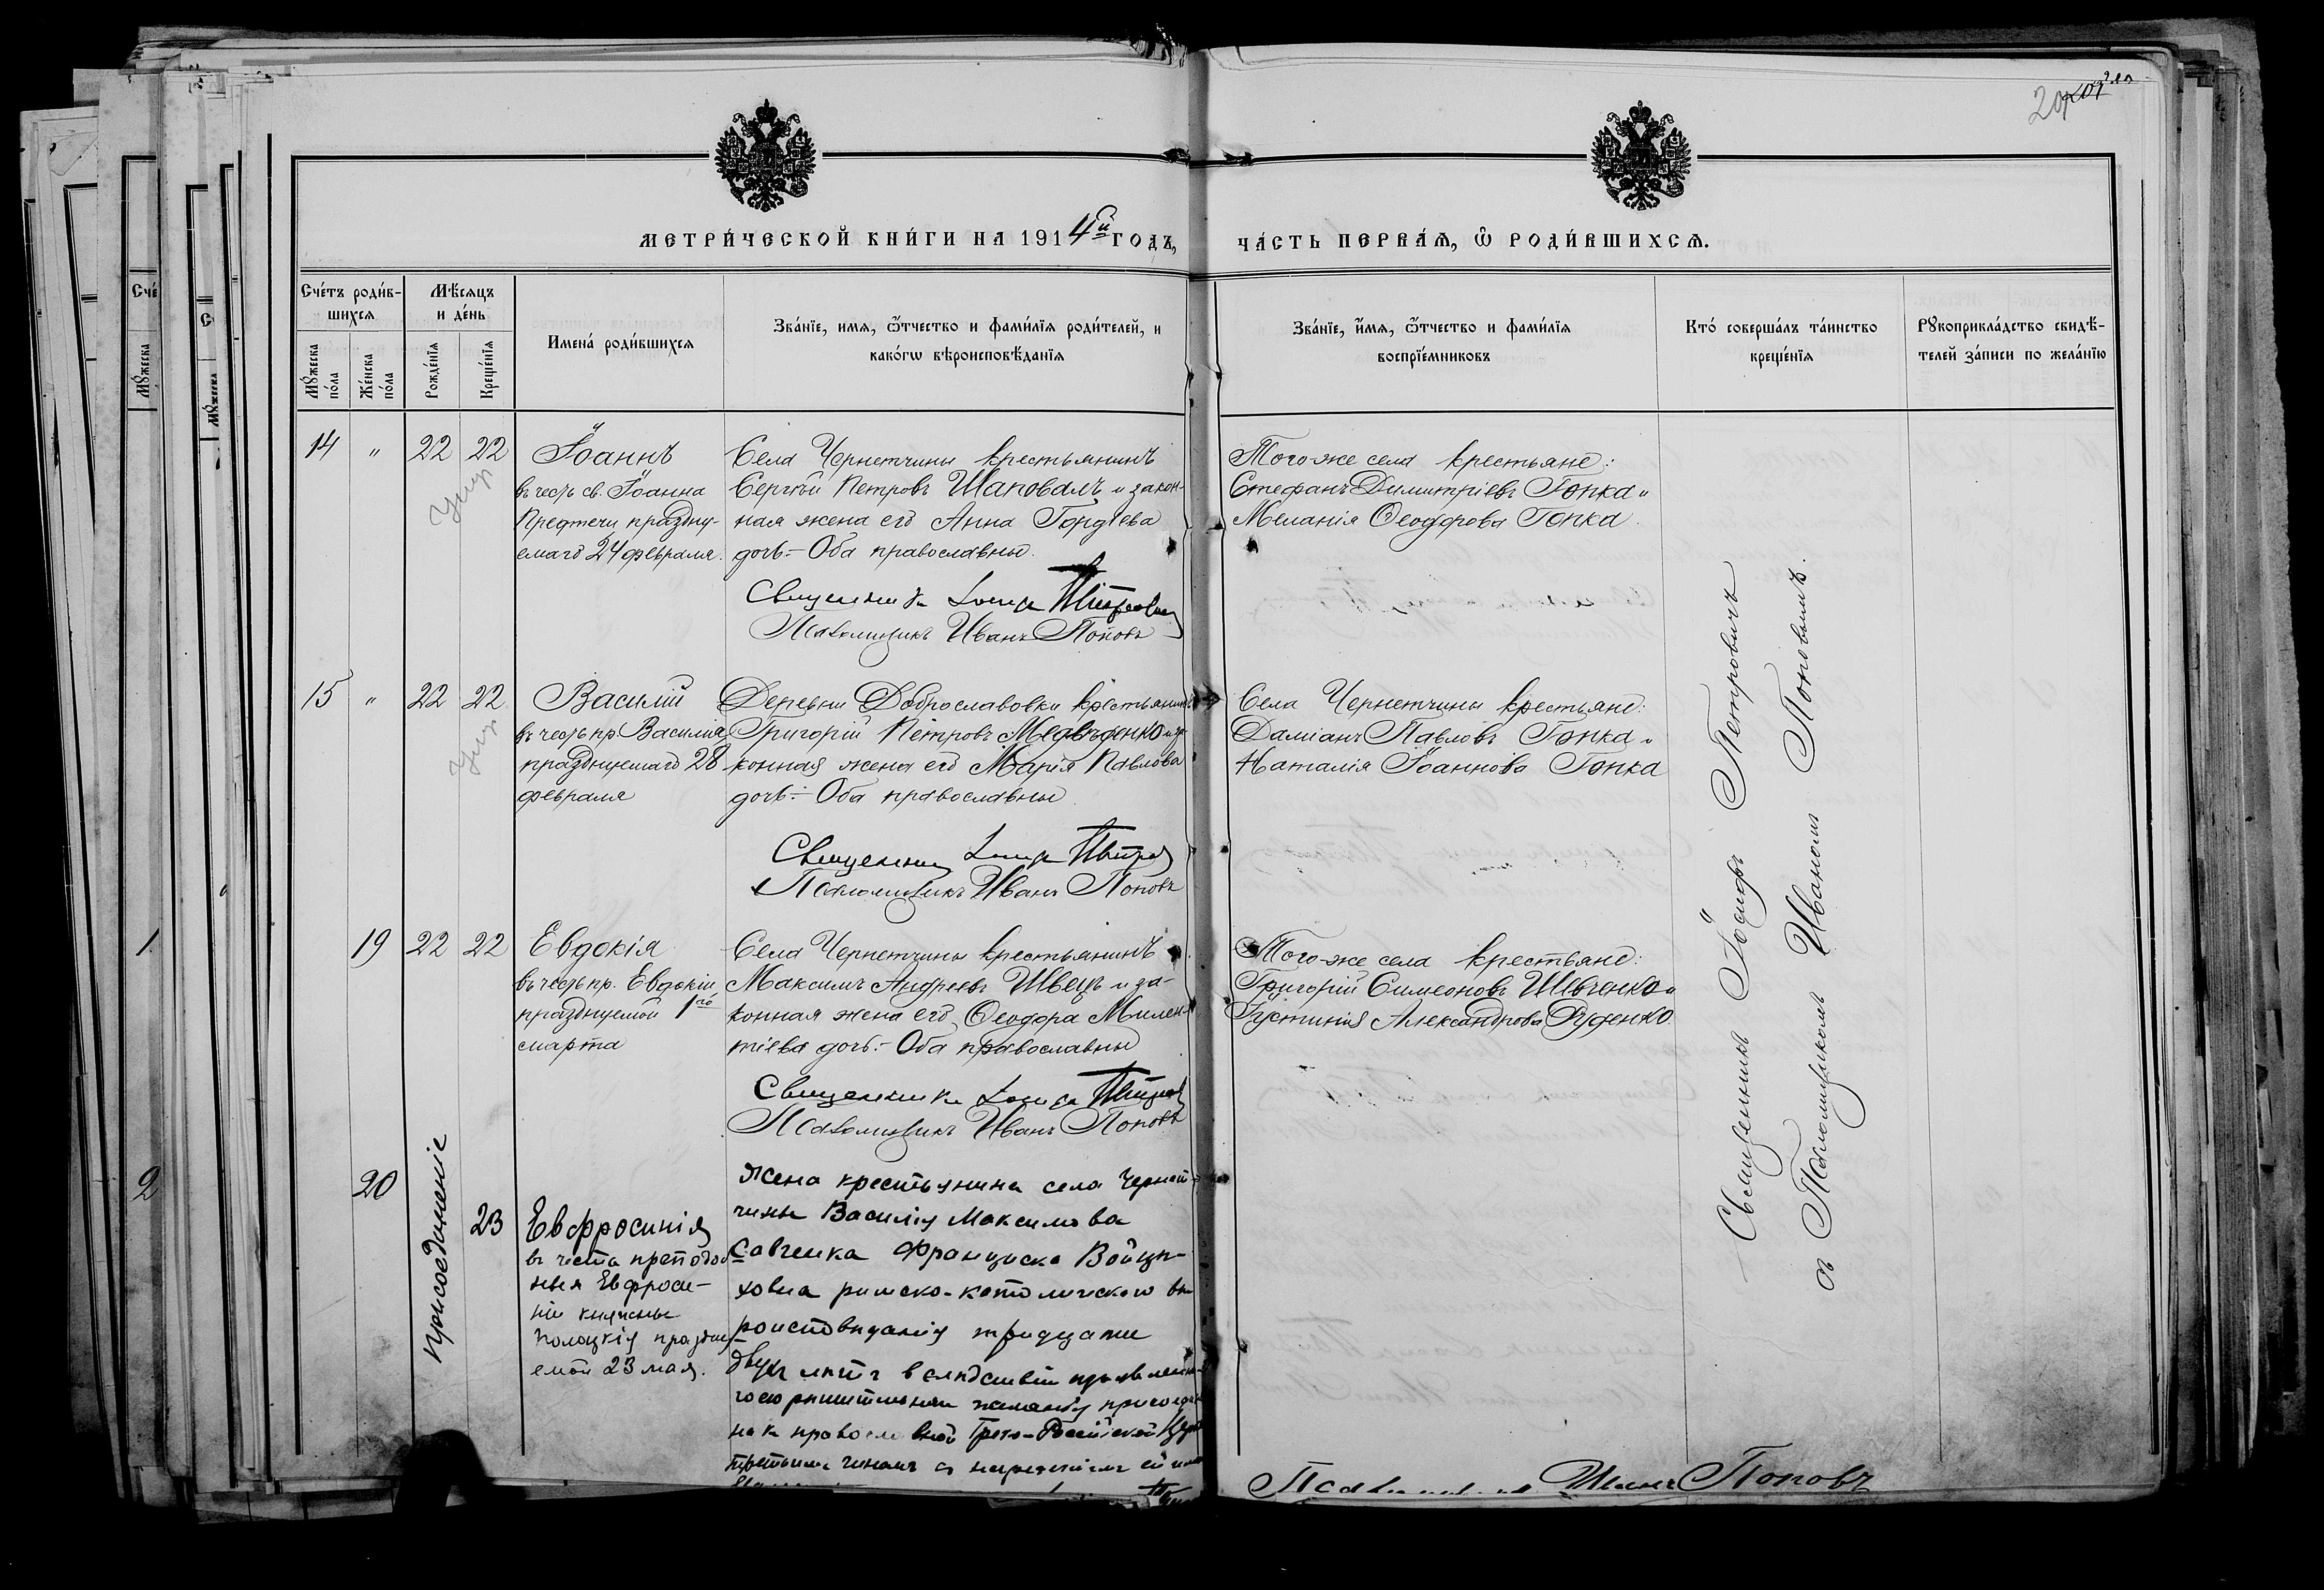 207 207
МЕТРИ́ЧЕСКОЙ КНИ́ГИ НА 1914й ГОДЪ,
ЧА́СТЬ ПЕРВА́Ѧ, Ѿ РОДИ́ВШИХСѦ.
Сче́тъ роди́в-
шихсѧ
Мѣ́сѧцъ
и де́нь
Мꙋ́жеска по́ла
Же́нска по́ла
Рожде́нїѧ
Креще́нїѧ
Имена́ роди́вшихсѧ
Зва́нїе, имѧ, ѿ́тчество и фами́лїѧ роди́телей, и
како́гѡ вѣроисповѣ́данїѧ
Зва́нїе, и́мѧ, ѿ́тчество и фами́лїѧ
воспрїе́мниковъ
Кто́ соверша́лъ та́инство
креще́нїѧ
Рꙋкоприкла́дство свидѣ́-
телей за́писи по жела́нїю
14 " 22 22
Іоаннъ
въ честь св. Іоанна
Предтечи праздну-
емаго 24 февраля.
Села Чернетчины крестьянинъ
Сергѣй Петровъ Шаповалъ и закон-
ная жена его Анна Гордѣева
дочь.- Оба православны.
Священникъ Іосифъ Петровичъ
Псаломщикъ Иванъ Поповъ
Того-же села крестьяне:
Стефанъ Димитріевъ Гопка и
Меланія Ѳеодорова Гопка.
15 " 22 22
Василій
въ честь пр. Василія
празднуемаго 28
февраля
Деревни Доброславовки крестьянинъ
Григорій Петровъ Медвѣденко и за-
конная жена его Марія Павлова
дочь.- Оба православны
Священникъ Іосифъ Петров
Псаломщикъ Иванъ Поповъ
Села Чернетчины крестьяне:
Даміанъ Павловъ Гопка и
Наталія Іоаннова Гопка
19 22 22
Евдокія
въ честь пр. Евдокіи
празднуемой 1го
марта
Села Чернетчины крестьянинъ
Максимъ Андреевъ Швецъ и за-
конная жена его Ѳеодора Милен-
тіева дочь.- Оба православны
Священникъ Іосифъ Петров
Псаломщикъ Иванъ Поповъ
Того-же села крестьяне:
Григорій Симеоновъ Шевченко и
Іустинія Александрова Руденко.
20
присоединеніе
23
Евфросинія
въ честь преподоб
ныя Евфроси-
ніи княжны
Полоцкія праздну-
емой 23 мая.
Жена крестьянина села Чернет-
чины Василія Максимова
Савченка Франциска Войцѣ-
ховна римско-католическаго вѣ
роисповѣданія тридцати
двухъ лѣтъ вслѣдствіи
желанію
на къ православной Греко-Россійской Церк
третьимъ чиномъ съ нареченіемъ ей имя
Священникъ Іосифъ Петровичъ
съ Псаломщикомъ Иваномъ Поповымъ.
Псаломщикъ Иванъ Поповъ
Сче
Мꙋжеска
1
2